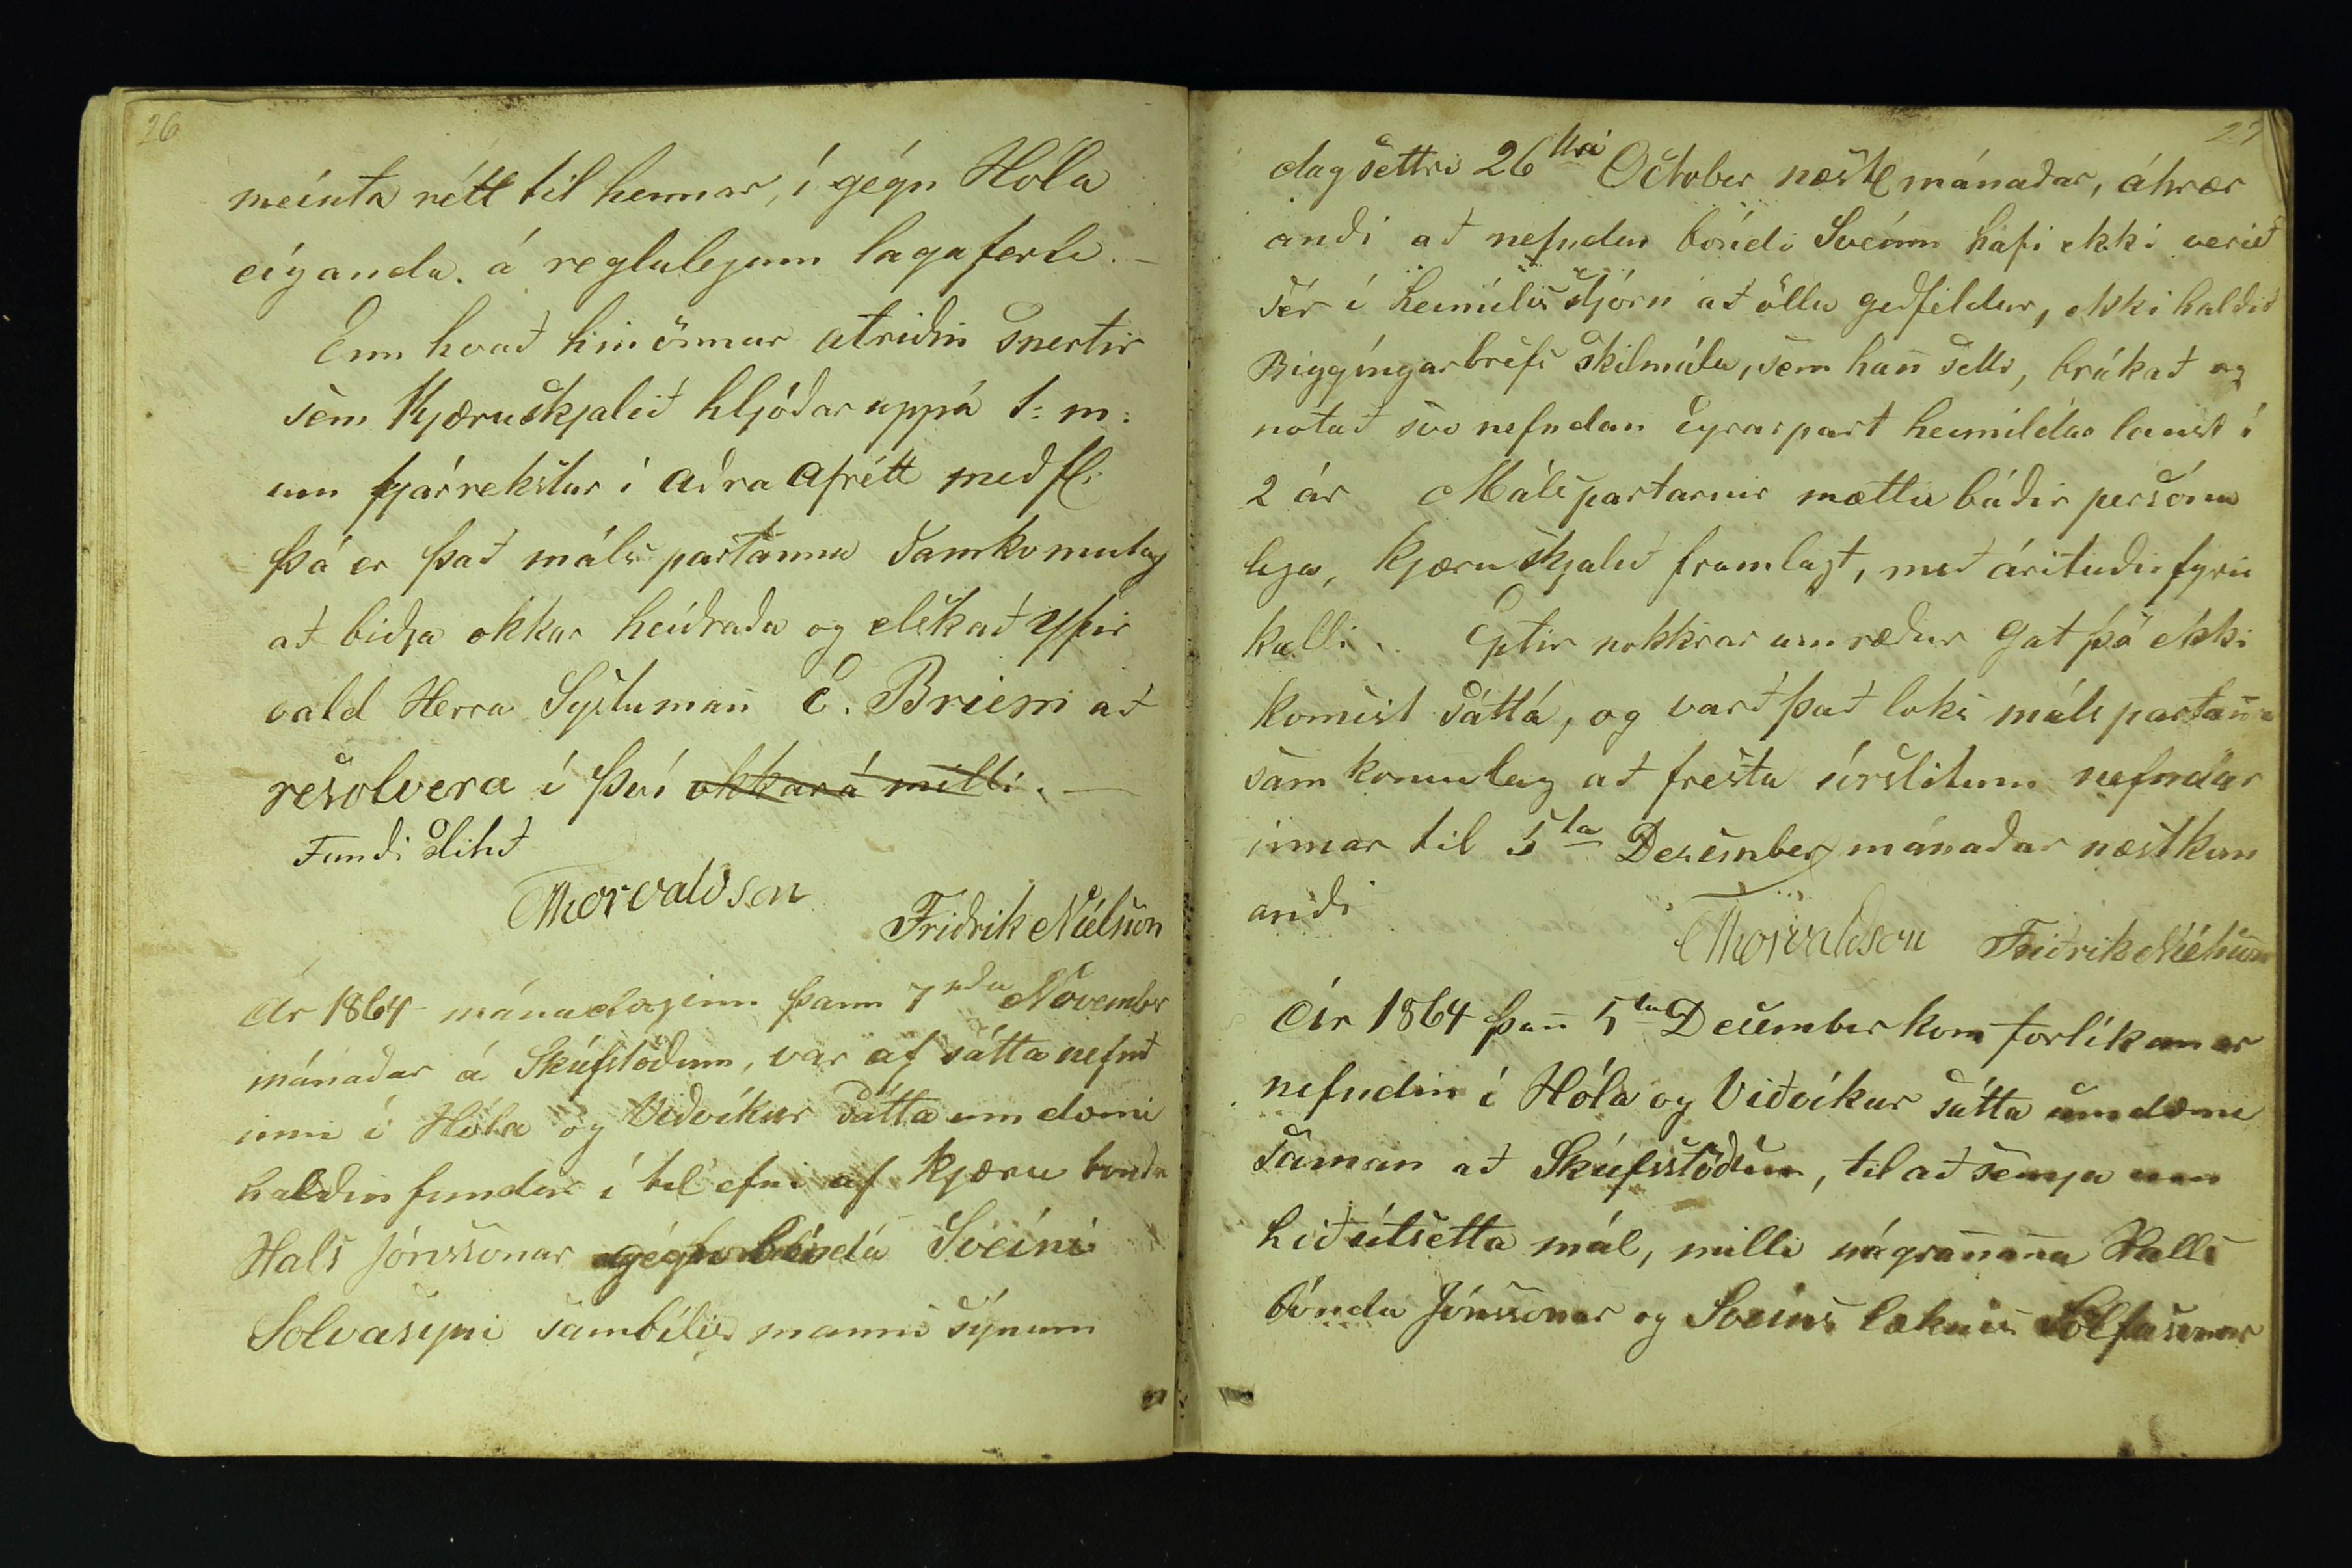 26
meinta rétt til hennar, í gégn Hóla
eíganda. á reglulegum lagaferli. –
Enn hvað hin önnur atriðin snertir
sem Kjæruskjalið hljóðar uppá t: m:
um fjárrekstur í aðra afrétt með fl:
þá er það máls partanna samkomulag
að biðja okkar heiðraða og elskað Yfir
vald Herra Syslumann E. Briem að
resolvera í því okkar á milli. —
Fundi slitið
Thorvaldsen
Friðrik Níelsson
Ár 1864 – mánadaginn þann 7nda November
mánaðar á Skúfstöðum, var af sátta nefnd
inni í Hóla og Viðvíkur sátta um dæmi
haldin fundur í tilefni af kjæru bonda
Hals Jónssonar gégn bónda Sveini
Solvasyni sambílis manni sýnum
27
dagsettri 26tta October næstl mánaðar, áhrær
andi að nefndur bóndi Sveinn hafi ekki verið
sér í heimilisstjórn að öllu geðfeldur, ekki haldið
Biggíngarbrefs skilmála, sem hann setti, brúkað og
notað svo nefndan Eyrarpart heimildar laust í
2 ár Máls partarnir mættu báðir persónu
lega, Kjæru skjalið framlagt, með árituðu fyrir
kalli. Eptir nokkrar umræður gat þó ekki
komist sátt á, og varð það loks máls partanna
samkomulag að fresta úrslitum nefndar
innar til 5ta Desember mánaðar næstkom
andi
Thorvaldsen Friðrik Níelsson
Ár 1864 þann 5ta Desember kom forlíkunar
nefndin í Hóla og Viðvíkur sátta umdæmi
saman að Skúfsstöðum, til að semja um
hið útsetta mál, milli nágrannanna Halls
bónda Jónssonar og Sveins læknis Sölfasonar